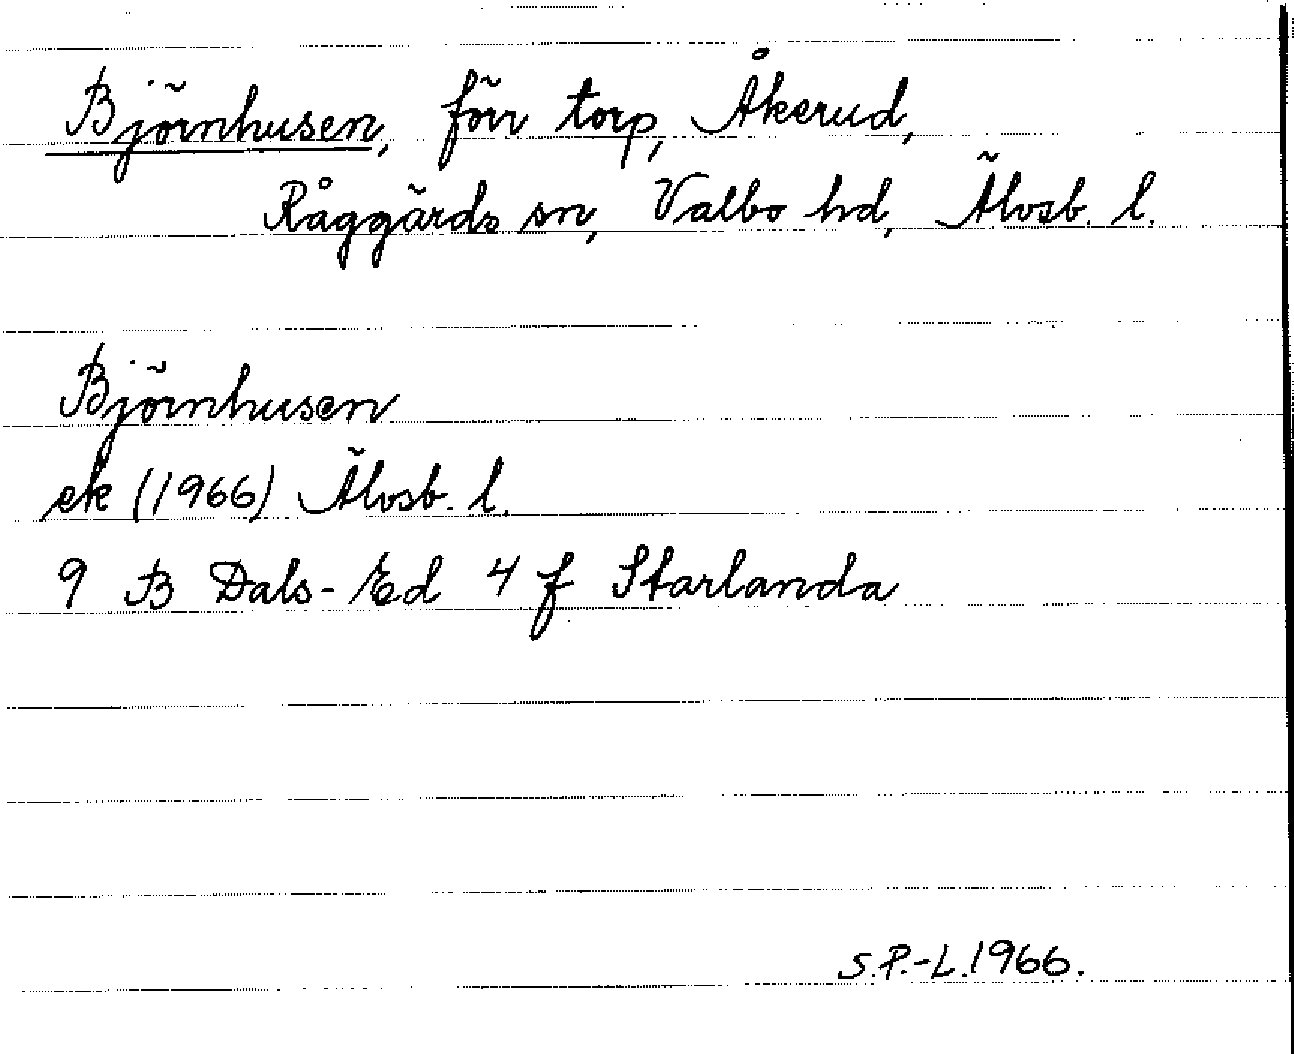 Björnhusen, förr torp, Åkerud,
Råggärds sn, Valbo hd, Älvsb. l.
Björnhusen
ek (1966) Älvsb. l.
9 B Dals-Ed 4 f Starlanda
S.P.-L.1966.